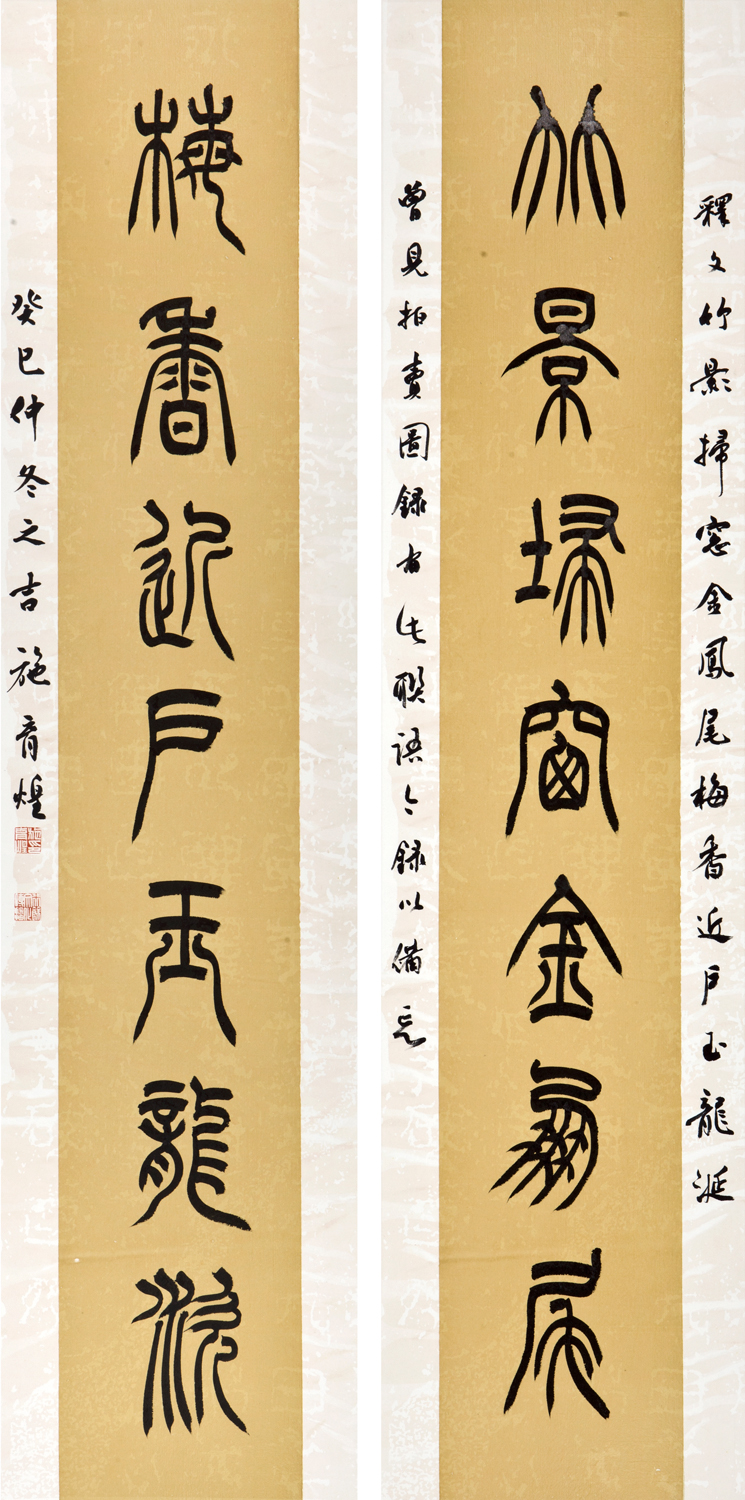 釋文竹影掃窓金鳳尾梅香近戶玉龍涎
竹景埽窗金鳳尾
曾見拍賣圖録有此聯語今録以備忘
梅香近戶玉龍㳄
癸巳仲冬之吉施育煌